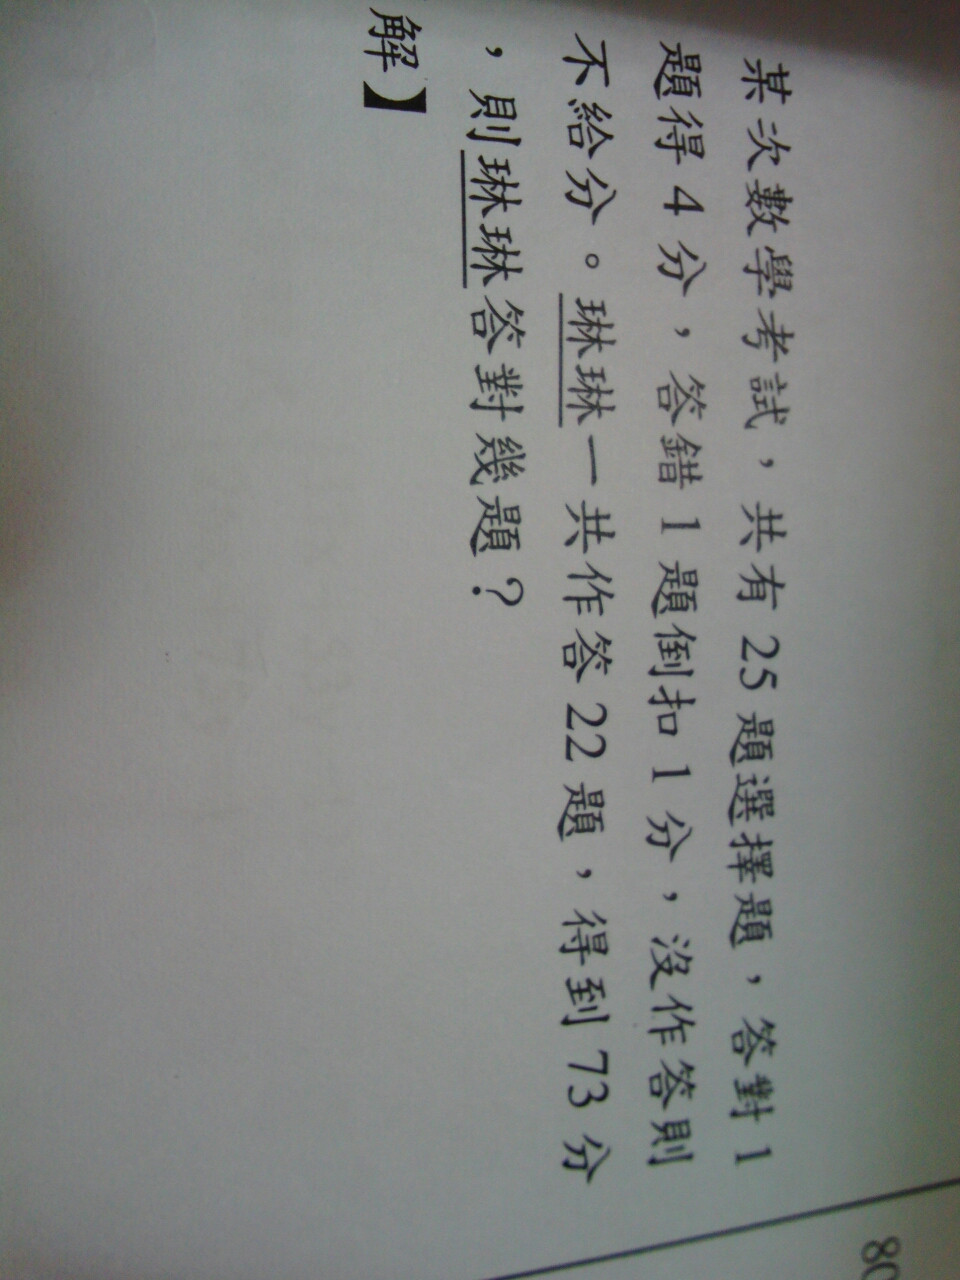 某次數學考試，共有 25 題選擇題，答對 1
題得 4 分，答錯 1 題倒扣 1 分，沒作答則
不給分。琳琳一共作答 22 題，得到 73 分
，則琳琳答對幾題？
解】
80